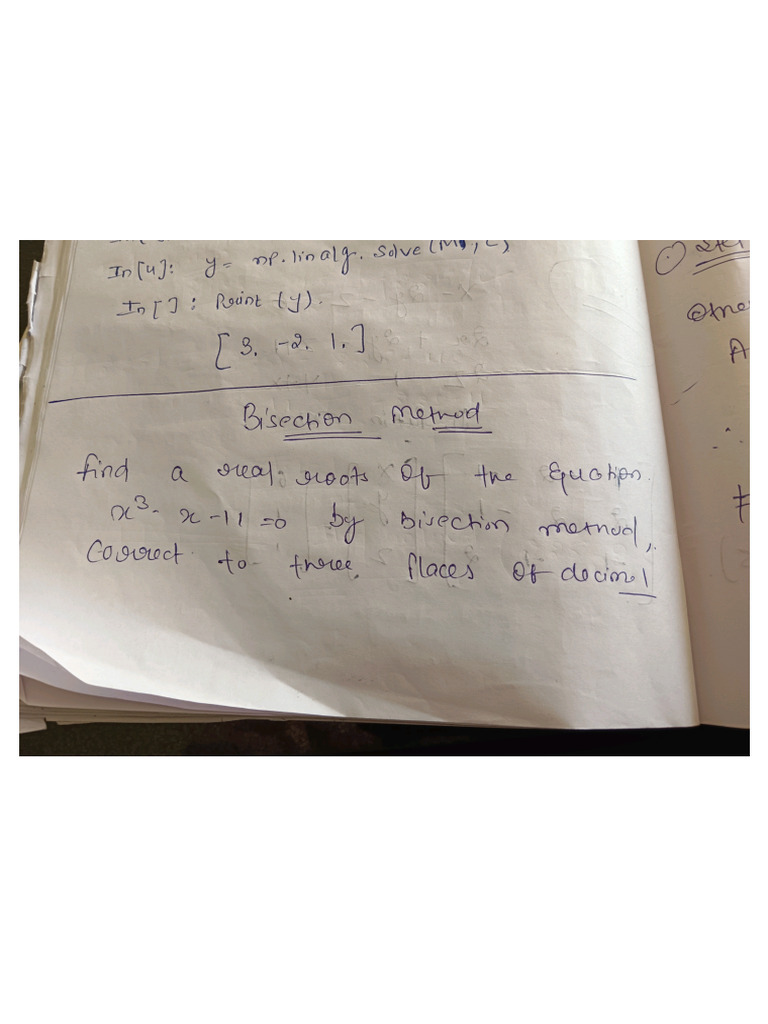 In[4]: y= np.linalg.solve(M,
In[ ]: Print (y).
[3. -2. 1.]
Bisection Method
find a real roots of the Equation.
x³- x -11 =0 by Bisection method,
Correct to three places of deciml